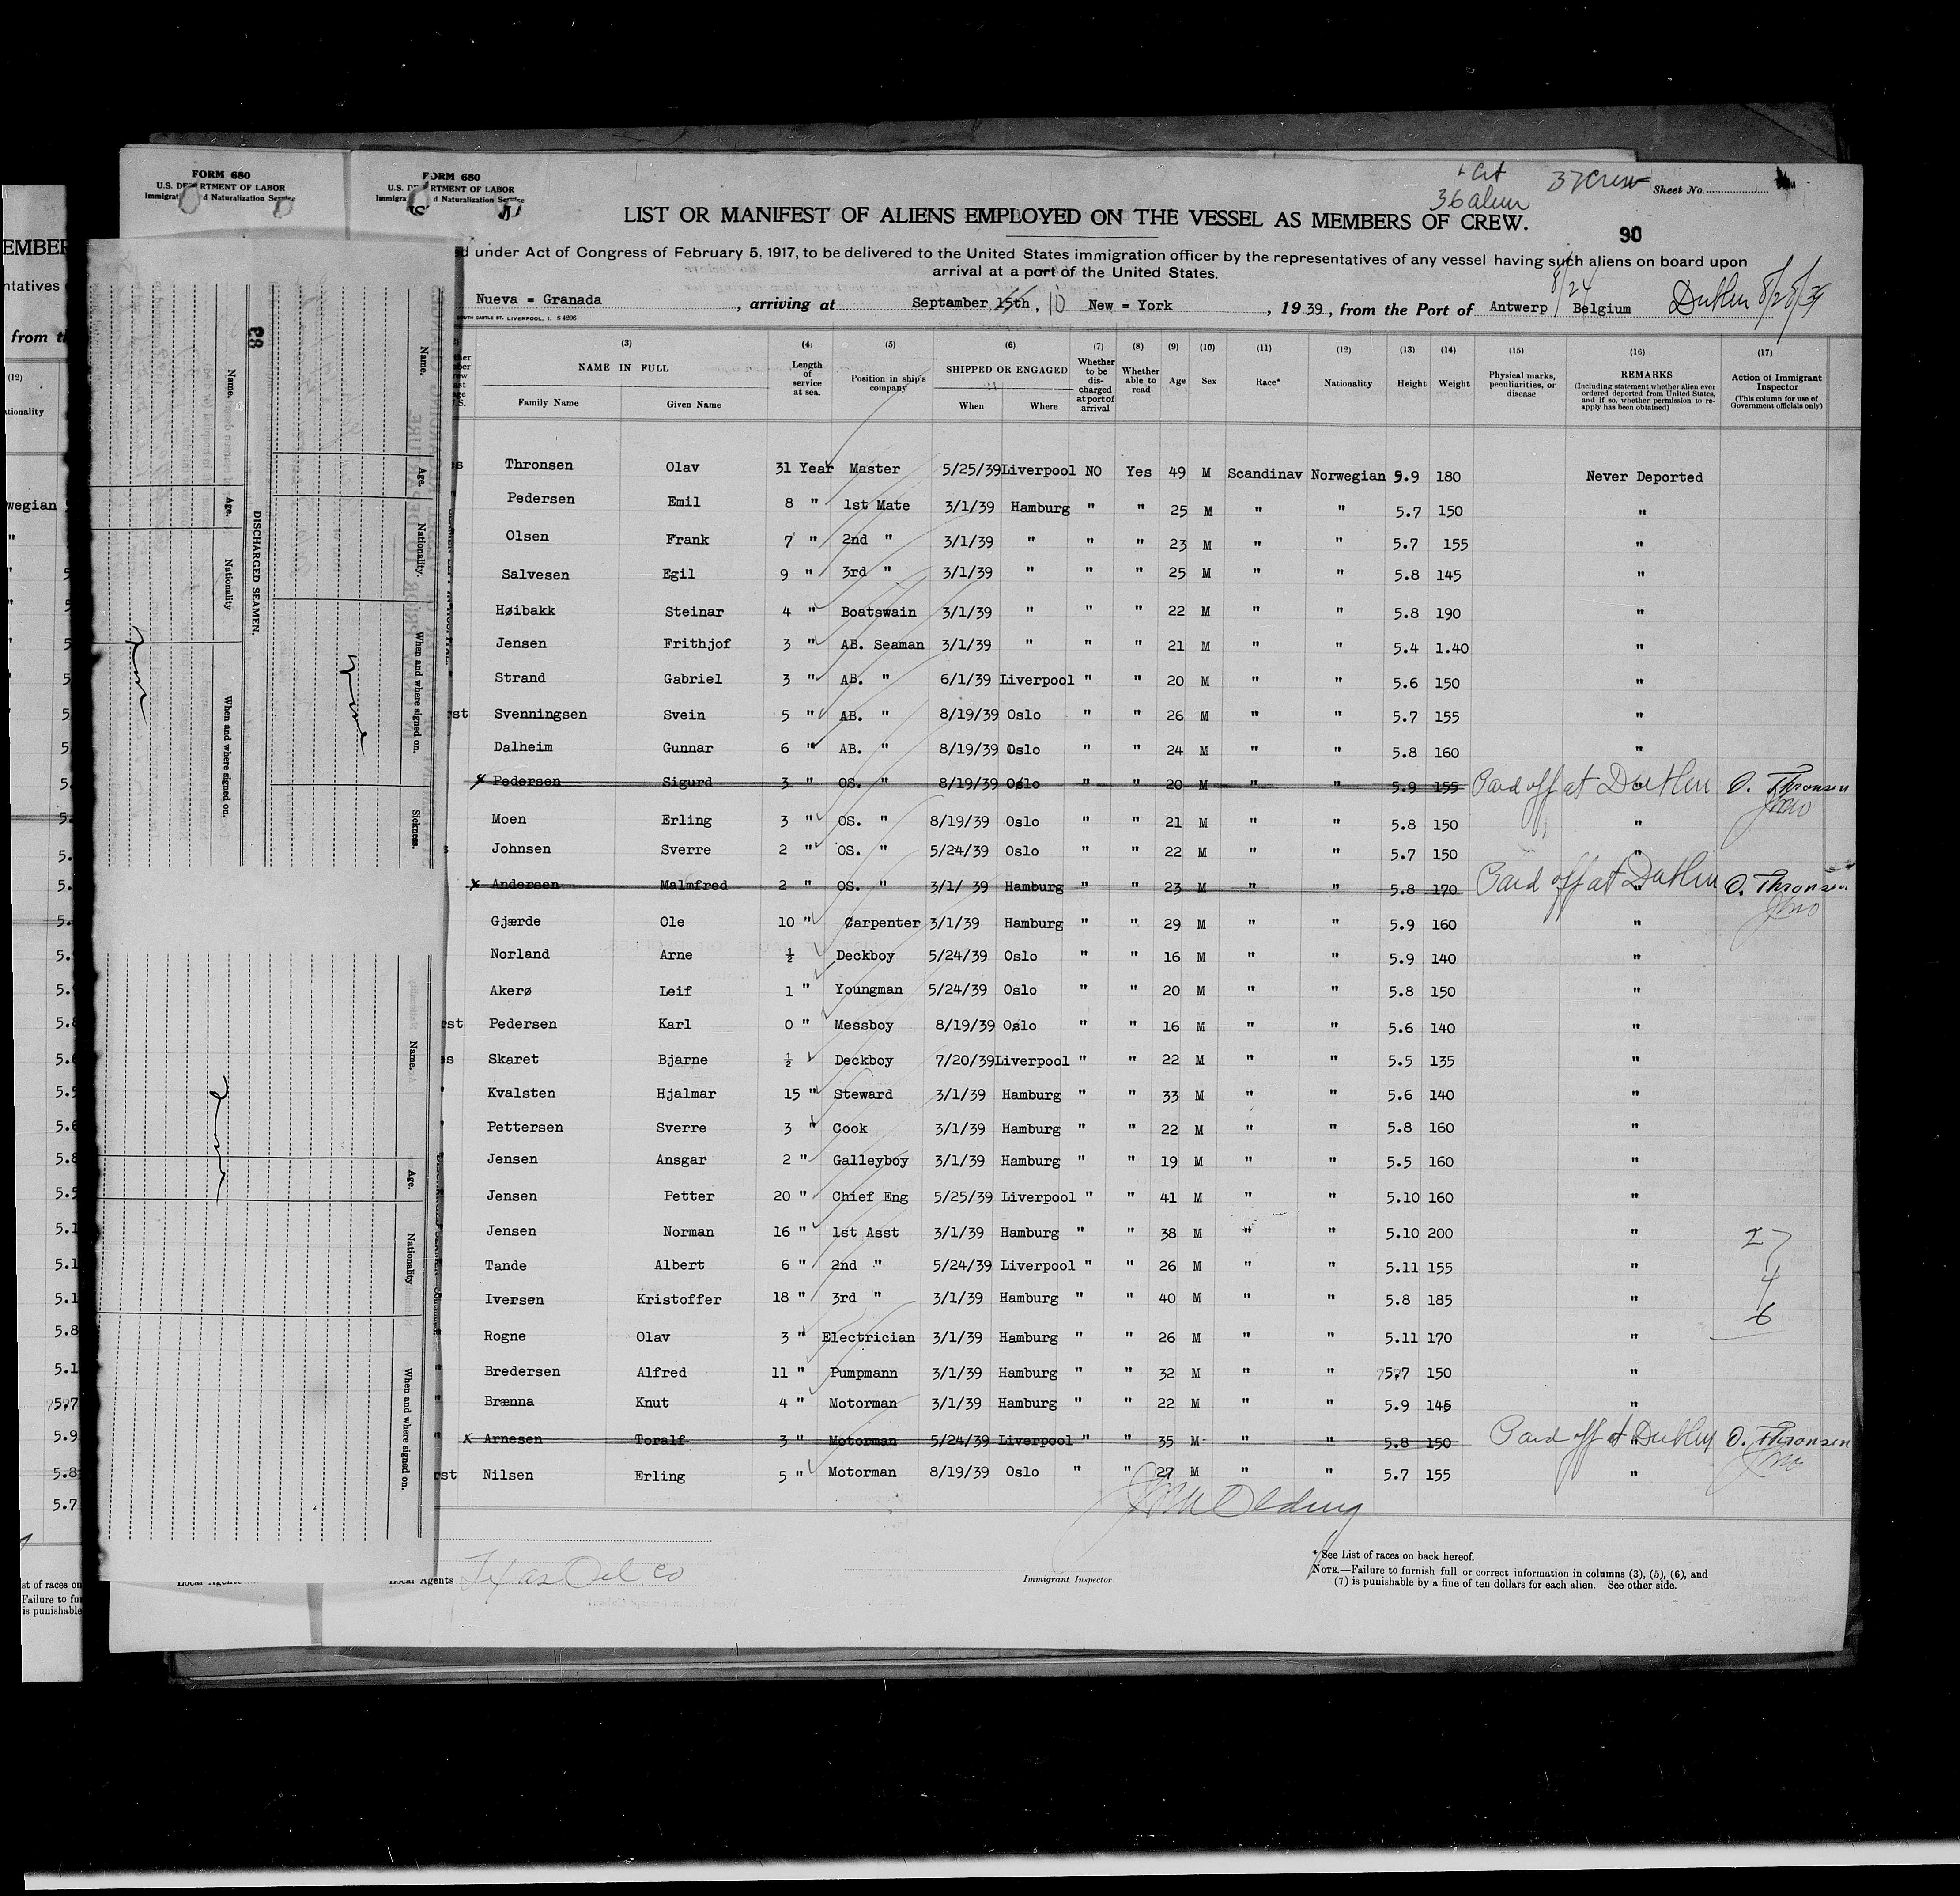 FORM 680
U.S. DEPARTMENT OF LABOR
Immigration and Naturalization Service
FORM 680
U.S. DEPARTMENT OF LABOR
Immigration and Naturalization Service
37 Crew
36 alien
Sheet No.
LIST OR MANIFEST OF ALIENS EMPLOYED ON THE VESSEL AS MEMBERS OF CREW.
90
d under Act of Congress of February 5, 1917, to be delivered to the United States immigration officer by the representatives of any vessel having such aliens on board upon
arrival at a port of the United States.
Nueva = Granada, arriving at September 15th, 10 New = York, 1939, from the Port of Antwerp 8/24 Belgium Dublin 8/28/39
(3) (4) (5) (6) (7) (8) (9) (10) (11) (12) (13) (14) (15) (16) (17)
NAME IN FULL
Family Name Given Name
Length of service at sea.
Position in ship's company
SHIPPED OR ENGAGED
When Where
Whether to be discharged at port of arrival
Whether able to read
Age Sex Race* Nationality Height Weight
Physical marks, peculiarities, or disease
REMARKS
(Including statement whether alien ever ordered deported from United States, and if so, whether permission to re-apply has been obtained)
Action of Immigrant Inspector
(This column for use of Government officials only)
Thronsen Olav 31 Year Master 5/25/39 Liverpool NO Yes 49 M Scandinav Norwegian 5.9 180 Never Deported
Pedersen Emil 8 " 1st Mate 3/1/39 Hamburg " " 25 M " " 5.7 150 "
Olsen Frank 7 " 2nd " 3/1/39 " " " 23 M " " 5.7 155 "
Salvesen Egil 9 " 3rd " 3/1/39 " " " 25 M " " 5.8 145 "
Høibakk Steinar 4 " Boatswain 3/1/39 " " " 22 M " " 5.8 190 "
Jensen Frithjof 3 " AB. Seaman 3/1/39 " " " 21 M " " 5.4 1.40 "
Strand Gabriel 3 " AB. " 6/1/39 Liverpool " " 20 M " " 5.6 150 "
rst Svenningsen Svein 5 " AB. " 8/19/39 Oslo " " 26 M " " 5.7 155 "
Dalheim Gunnar 6 " AB. " 8/19/39 Oslo " " 24 M " " 5.8 160 "
x Pedersen Sigurd 3 " OS. " 8/19/39 Oslo " " 20 M " " 5.9 155 Paid off at Dublin O. Thronsen
Moen Erling 3 " OS. " 8/19/39 Oslo " " 21 M " " 5.8 150 "
Johnsen Sverre 2 " OS. " 5/24/39 Oslo " " 22 M " " 5.7 150 "
x Andersen Malmfred 2 " OS. " 3/1/ 39 Hamburg " " 23 M " " 5.8 170 Paid off at Dublin " O. Thronsen
Gjærde Ole 10 " Carpenter 3/1/39 Hamburg " " 29 M " " 5.9 160 "
Norland Arne ½ Deckboy 5/24/39 Oslo " " 16 M " " 5.9 140 "
Akerø Leif 1 " Youngman 5/24/39 Oslo " " 20 M " " 5.8 150 "
rst Pedersen Karl 0 " Messboy 8/19/39 Oslo " " 16 M " " 5.6 140 "
Skaret Bjarne ½ Deckboy 7/20/39 Liverpool " " 22 M " " 5.5 135 "
Kvalsten Hjalmar 15 " Steward 3/1/39 Hamburg " " 33 M " " 5.6 140 "
Pettersen Sverre 3 " Cook 3/1/39 Hamburg " " 22 M " " 5.8 160 "
Jensen Ansgar 2 " Galleyboy 3/1/39 Hamburg " " 19 M " " 5.5 160 "
Jensen Petter 20 " Chief Eng 5/25/39 Liverpool " " 41 M " " 5.10 160 "
Jensen Norman 16 " 1st Asst 3/1/39 Hamburg " " 38 M " " 5.10 200 " 27
Tande Albert 6 " 2nd " 5/24/39 Liverpool " " 26 M " " 5.11 155 " 4
Iversen Kristoffer 18 " 3rd " 3/1/39 Hamburg " " 40 M " " 5.8 185 " 6
Rogne Olav 3 " Electrician 3/1/39 Hamburg " " 26 M " " 5.11 170 "
Bredersen Alfred 11 " Pumpmann 3/1/39 Hamburg " " 32 M " " 5.7 150 "
Brænna Knut 4 " Motorman 3/1/39 Hamburg " " 22 M " " 5.9 145 "
x Arnesen Toralf 3 " Motorman 5/24/39 Liverpool " " 35 M " " 5.8 150 Paid off at Dublin " O. Thronsen
rst Nilsen Erling 5 " Motorman 8/19/39 Oslo " " 27 M " " 5.7 155 "
Local Agents Texas Oil Co
Immigrant Inspector
* See List of races on back hereof.
NOTE.—Failure to furnish full or correct information in columns (3), (5), (6), and
(7) is punishable by a fine of ten dollars for each alien. See other side.
83
DISCHARGED SEAMEN.
Name. Age. Nationality. When and where signed on. Sickness.
Name. Age. Nationality When and where signed on.
Name. Age. Nationality When and where signed on.